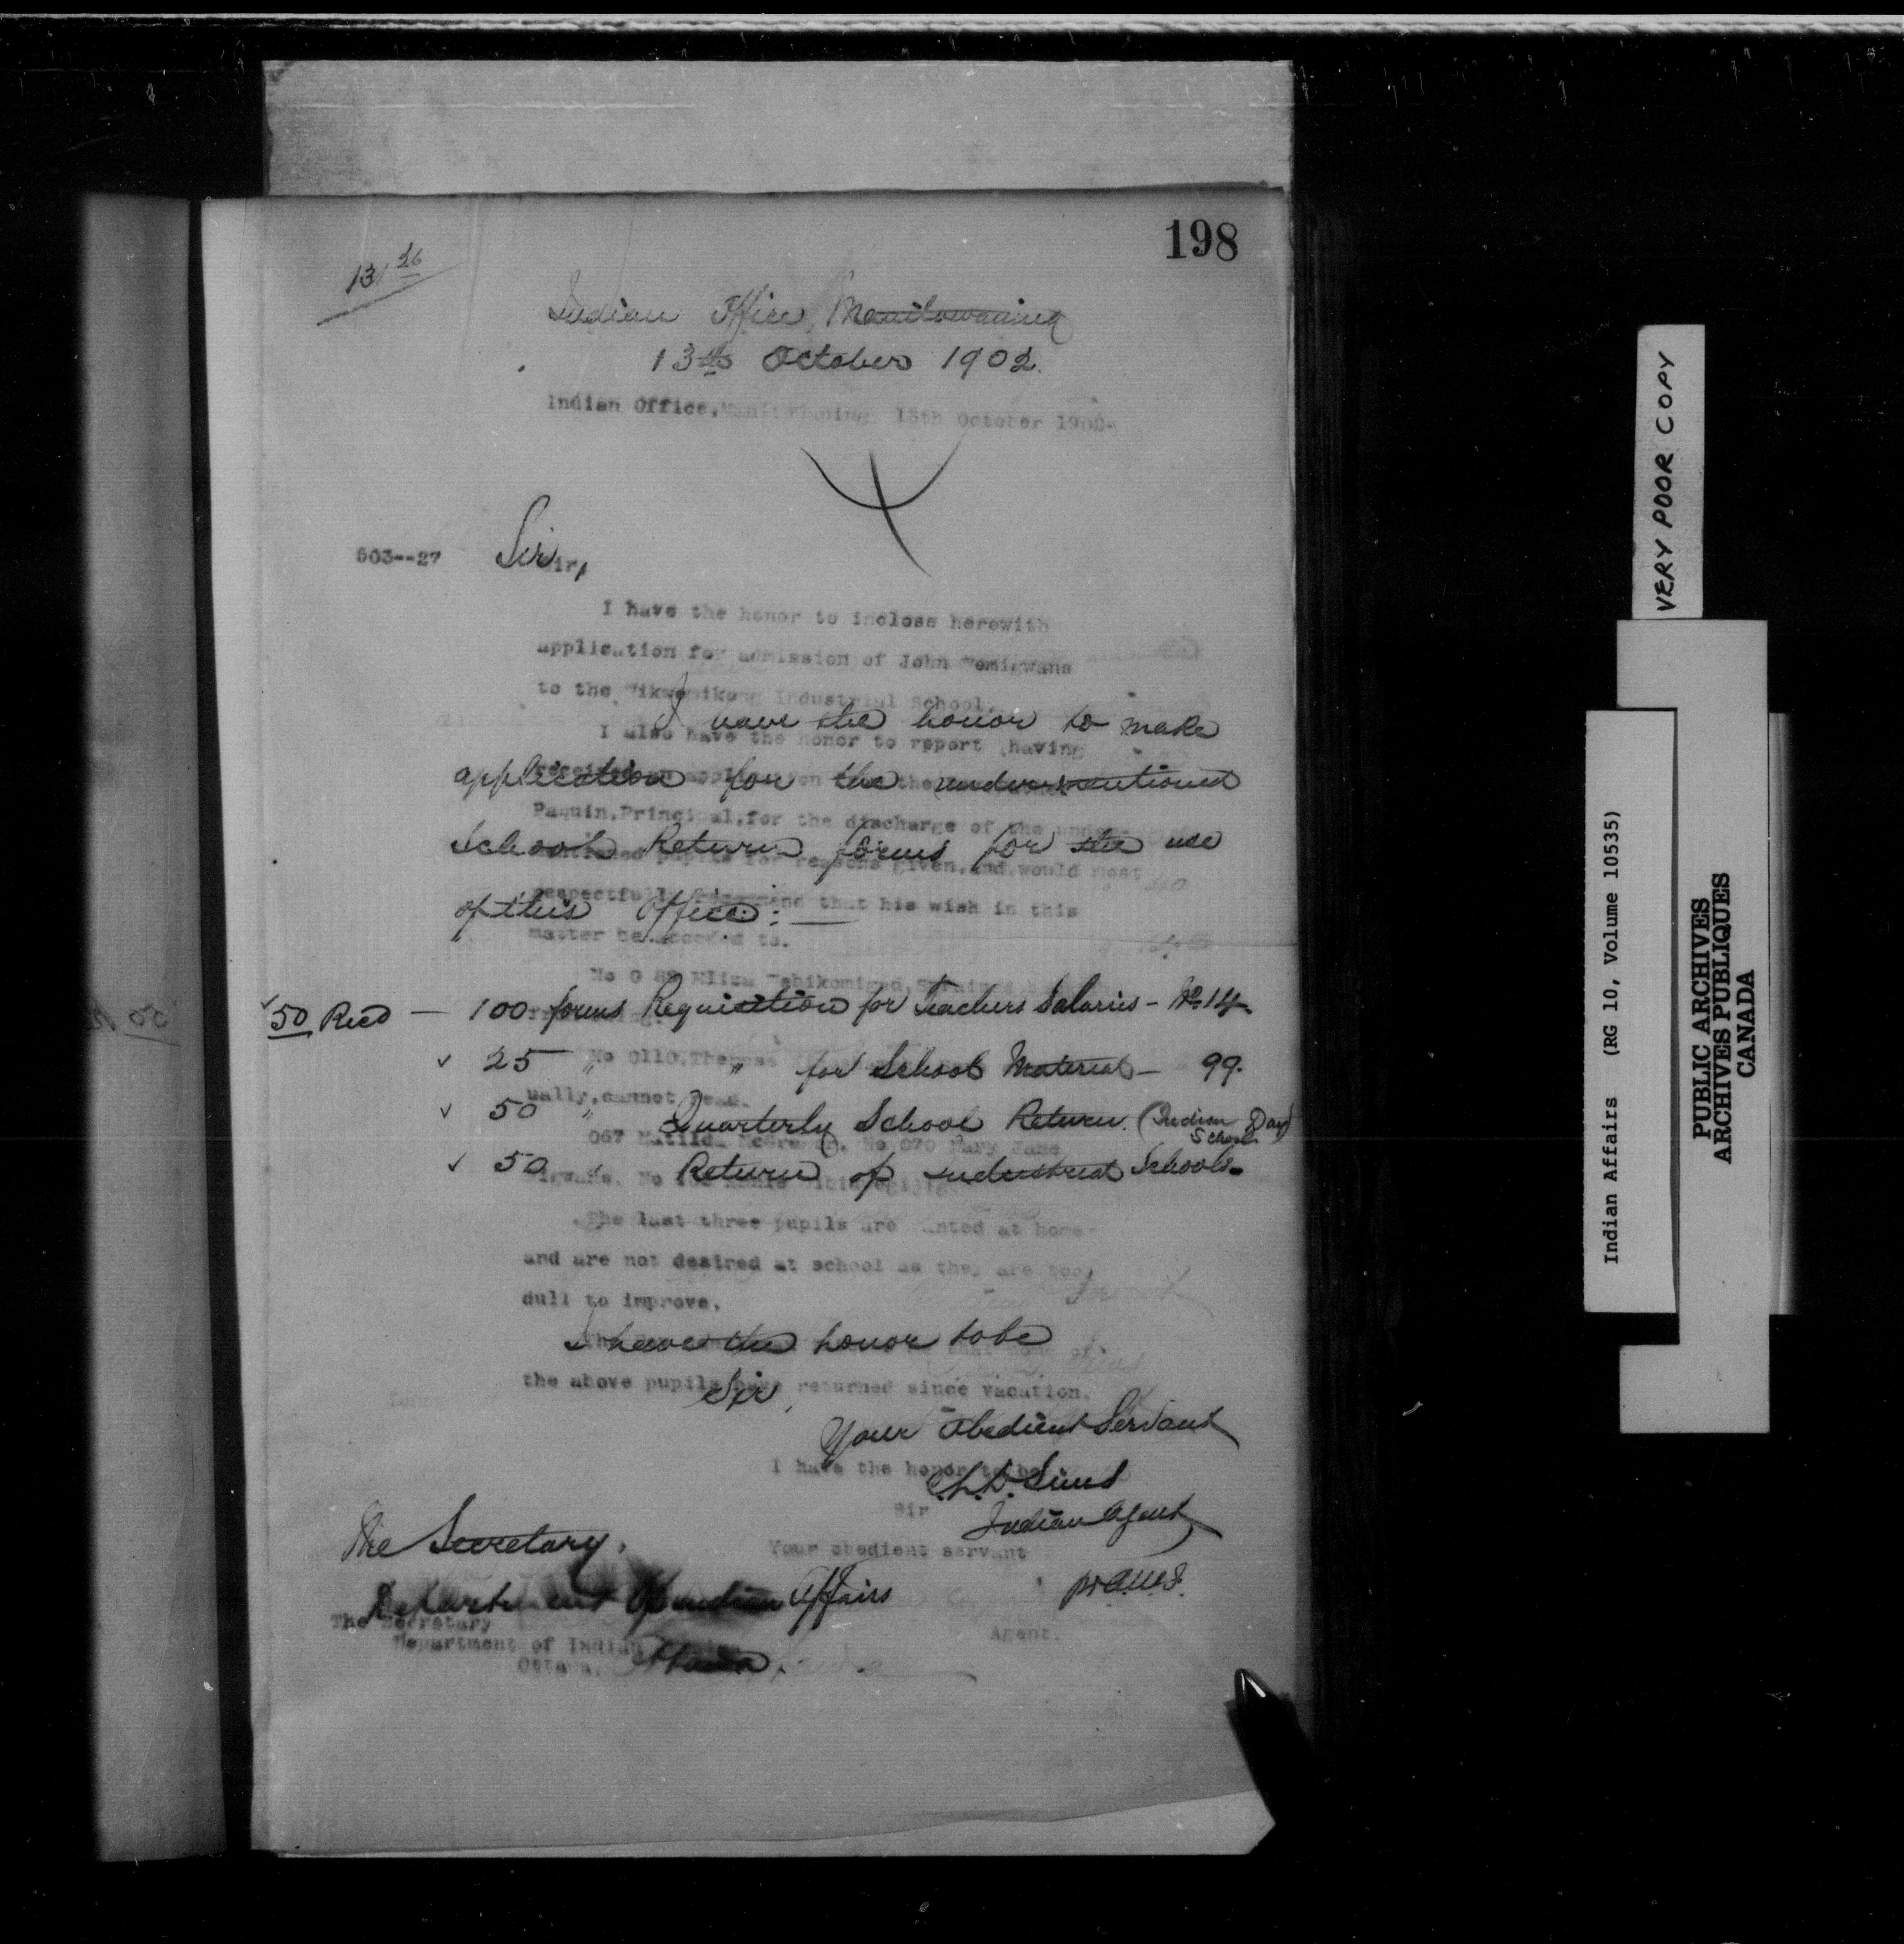 198
131 26
Indian Office, Manitowaning
13th October 1902.
Indian Office, Manitowaning 13th October 1902-
603--27
Sir,
Sir,
I have the honor to inclose herewith
application for admission of John
to the Wikwemikong Industrial School.
I have the honor to make
I also have the honor to rpport having
application for the undermentioned
Paquin, Principal, for the discharge of the under-
School Return forms for the use
pupils for reasons given, and would most
respectfully recommend that his wish in this
of this Office: —
matter be acceded to.
No 0 Eliza
50 Recd — 100 forms Requisition for Teachers Salaries - No. 14
No 0110, Therese
✓ 25 " " for School Material - 99.
ually, cannot read.
✓ 50 " Quarterly School Return. (Indian Day School)
067 Matilda McGregor, No 070 Mary Jane
✓ 50 " Return of industrial Schools.
The last three pupils are wanted at home
and are not desired at school as they are too
dull to improve.
I have the honor to be
the above pupils have returned since vacation.
Sir,
Your Obedient Servant
I have the honor to be
C.L.D. Sims
Sir
Indian Agent
Your obedient servant
The Secretary,
Department of Indian Affairs
The Secretary
Agent.
Department of Indian
Ottawa.
Ottawa
VERY POOR COPY
Indian Affairs (RG 10, Volume 10535)
PUBLIC ARCHIVES
ARCHIVES PUBLIQUES
CANADA